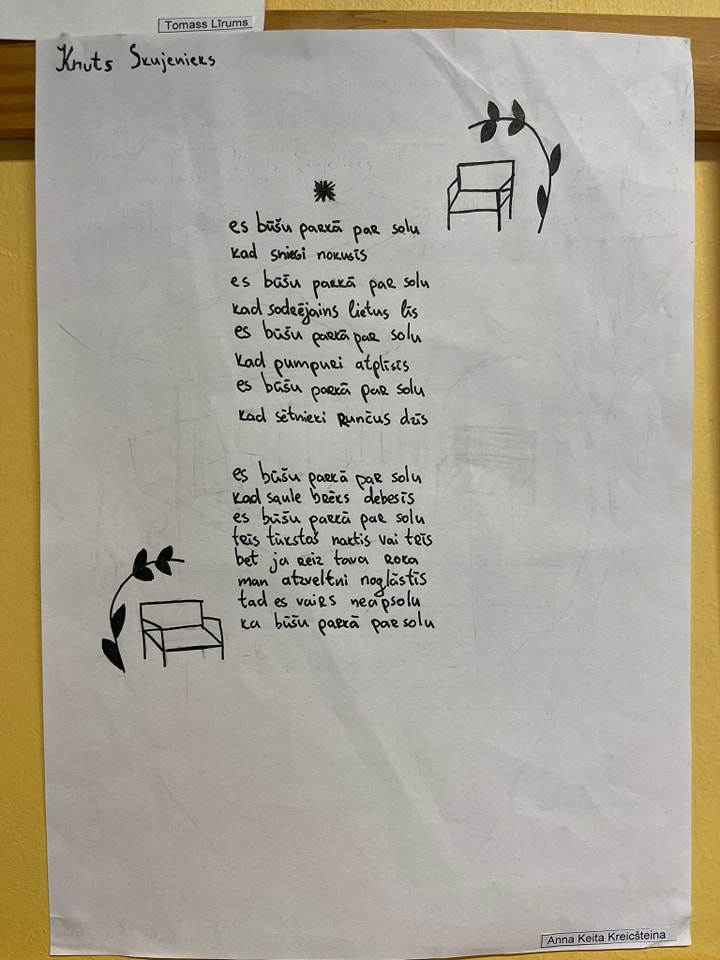 Tomass Līrums
Knuts Skujenieks
es būšu parkā par solu
kad sniegi nokusīs
es būšu parkā par solu
kad sodrējains lietus līs
es būšu parkā par solu
kad pumpuri atplīsīs
es būšu parkā par solu
kad sētnieki runčus dzīs
es būšu parkā par solu
kad saule brēks debesīs
es būšu parkā par solu
trīs tūkstoš naktis vai trīs
bet ja reiz tava roka
man atzveltni noglāstīs
tad es vairs neapsolu
ka būšu parkā par solu
Anna Keita Kreicšteina